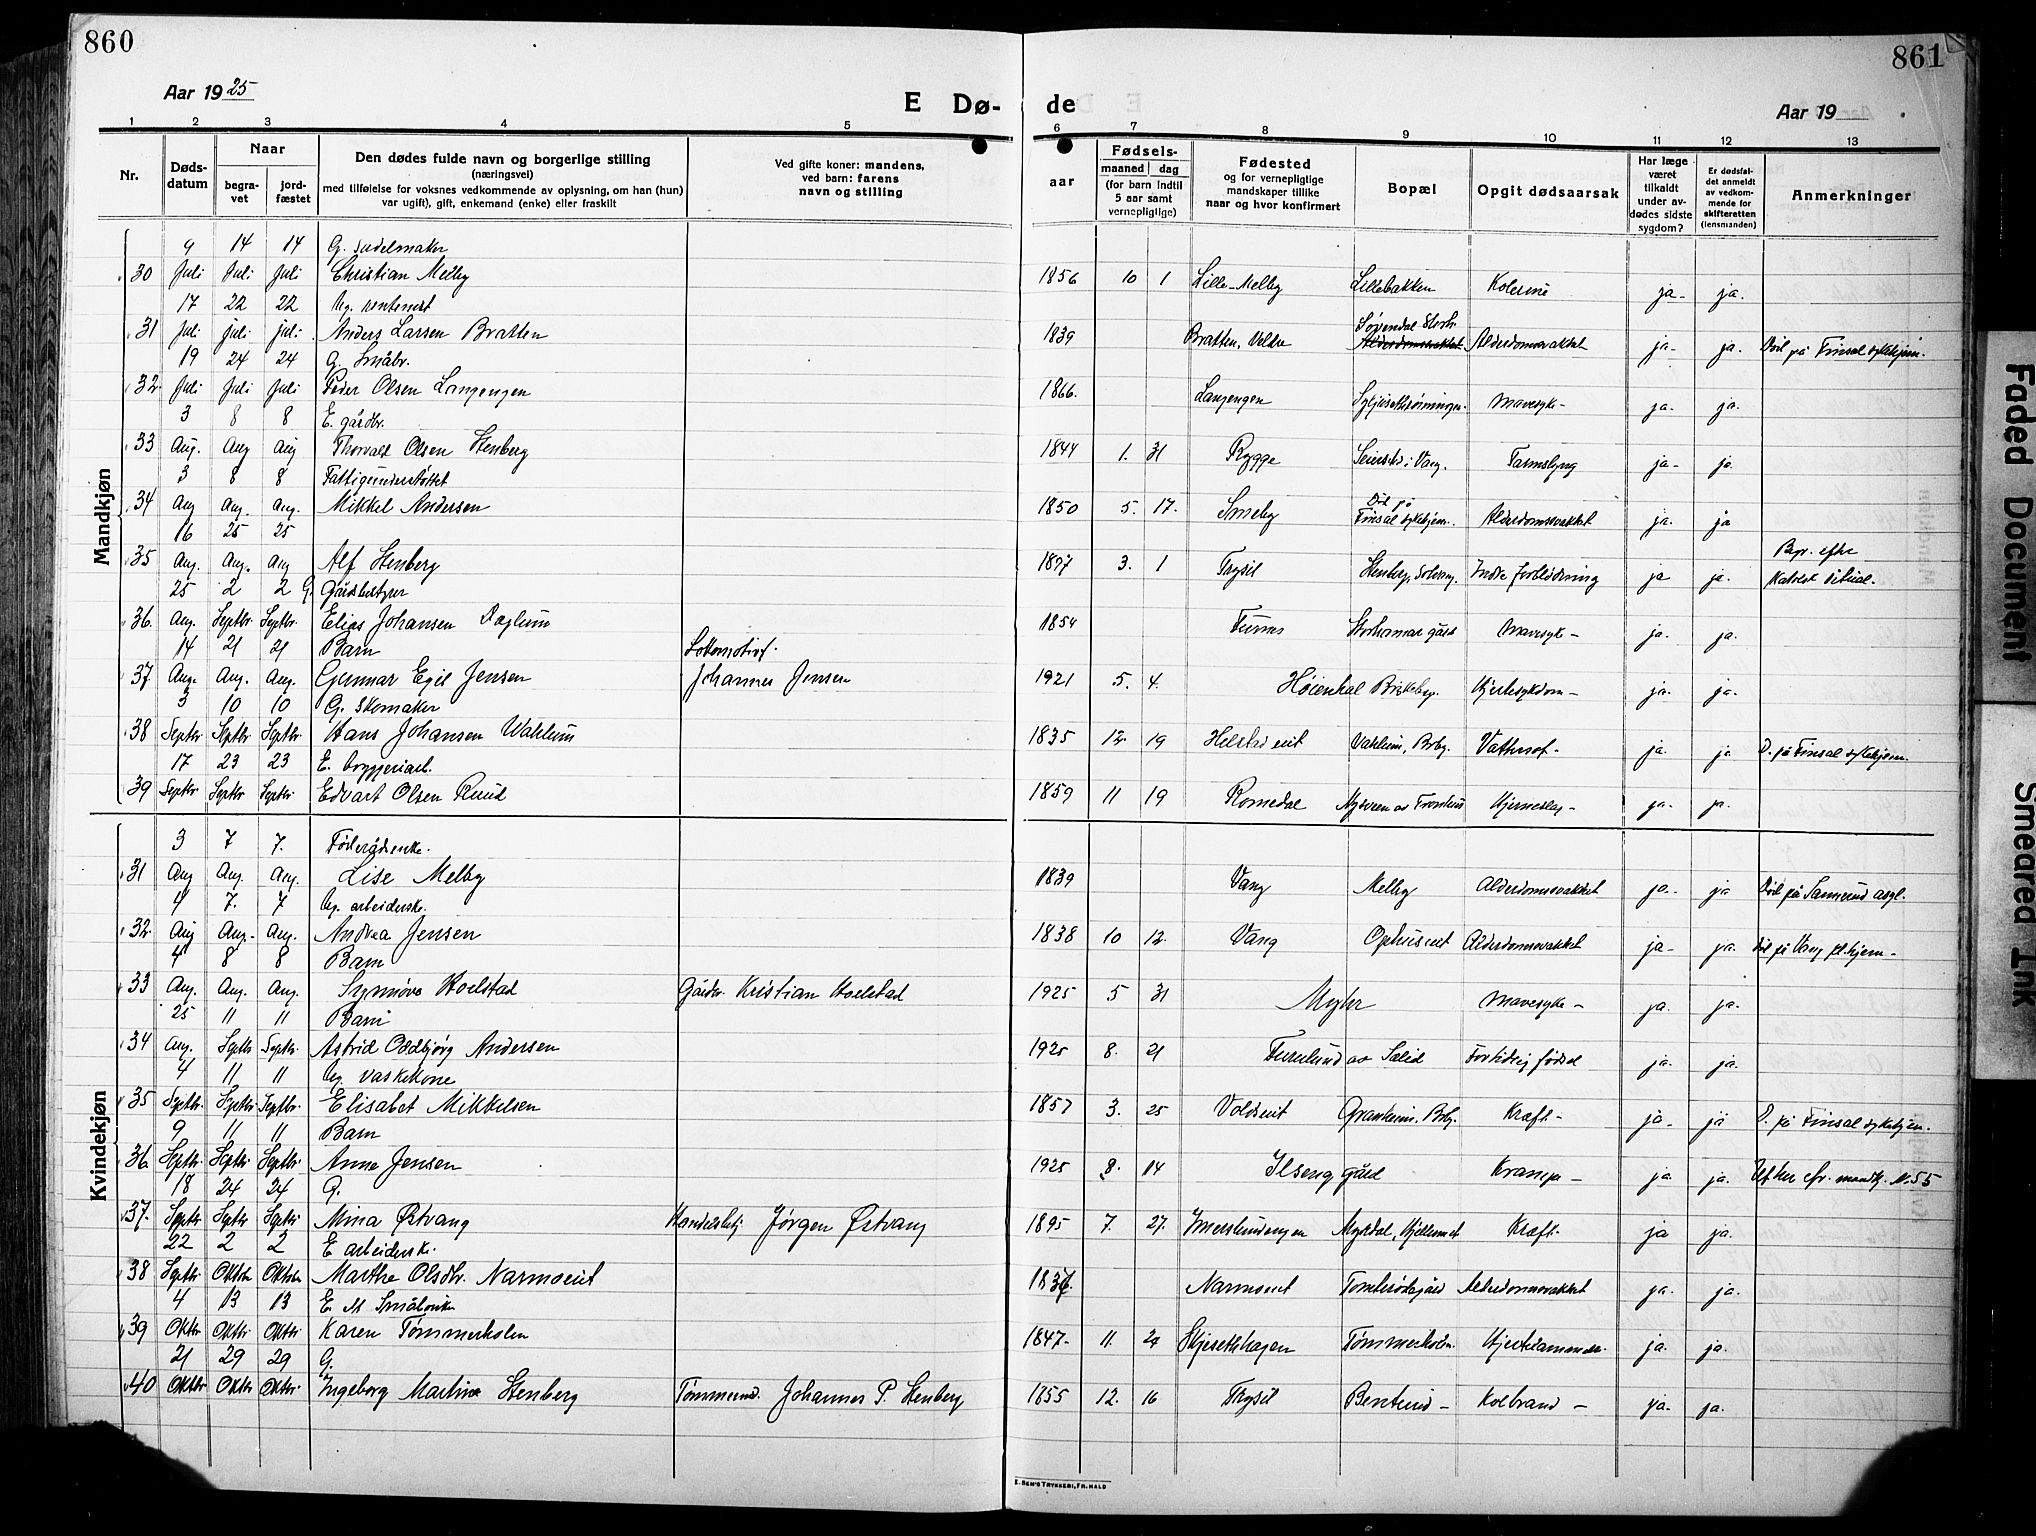 860
861
Aar 1925
E Dø-
de
Aar 19
1 2 3 4 5 6 7 8 9 10 11 12 13
Nr.
Døds-
datum
Naar
begra-
vet
jord-
fæstet
Den dødes fulde navn og borgerlige stilling
(næringsvei)
med tilføielse for voksnes vedkommende av oplysning, om han (hun)
var ugift), gift, enkemand (enke) eller fraskilt
Ved gifte koner: mandens,
ved barn: farens
navn og stilling
aar
Fødsels-
maaned dag
(for barn indtil
5 aar samt
vernepligtige)
Fødested
og for vernepligtige
mandskaper tillike
naar og hvor konfirmert
Bopæl
Opgit dødsaarsak
Har læge
været
tilkaldt
under av-
dødes sidste
sygdom?
Er dødsfal-
det anmeldt
av vedkom-
mende for
skifteretten
(lensmanden)
Anmerkninger
Mandkjøn
9 14 14 G. sadelmaker
30 Juli Juli Juli Christian Melby 1856 10 1 Lille-Melby Lillebakken ja- ja.
17 22 22 Ug.
31 Juli juli juli. Anders Larsen Bratten 1839 Bratten, Veldre Alderdomssvakhet ja- ja. Død på Finsal sykehjem.
19 24 24 G. Småbr.
32. Juli Juli Juli Peder Olsen Langengen 1866. Langengen Mavesyke- ja- ja.
3 8 8 E. gårdbr.
33 Aug. Aug Aug Thorvald Olsen Stenberg 1844 1. 31 Rygge Seierstad i Vang. Tarmslyng ja- ja.
3 8 8 Fattigunderstøttet
34 Aug Aug. Aug. Mikkel Andersen 1850 5. 17. Smeby Død på Finsal sykehjem. Alderdomssvakhet ja. ja
16 25 25
35 Aug. Aug. Aug Alf Stenberg 1897 3. 1 Trysil Stenberg, Indre forblødning ja ja. Begr. efter katolsk ritual.
25 2 2 G. Gårdbestyrer
36. Aug. Septbr. Septbr. Elias Johansen Dæhlum 1854 Furnes Storhamar gård Mavesyke- ja. ja.
14 21 21 Barn Lokomotivf.
37 Aug. Aug. Aug. Gunnar Egil Jensen Johannes Jensen 1921 5. 4. Høienhal Briskeby. Hjertesykdom- ja. ja.
3 10 10 G. Skomaker
38 Septbr Septbr Septbr Hans Johansen Wahlum 1835 12. 19 Helstadeiet Vahlum, Brby. Vattersot- ja. ja D. på Finsal sykehjem.
17 23 23 E. bryggeriarb.
39 Septbr Septbr Septbr Edvart Olsen Ruud 1859 11 19 Romedal Hjerneslag- ja. ja.
Kvindekjøn
3 7 7. Føderådsenke.
31 Aug Aug. Aug. Lise Melby 1839 Vang Melby Alderdomssvakhet ja- ja
4 7. 7 Ug. arbeiderske.
32. Aug Aug.- Aug. Andrea Jensen 1838 10 12. Vang Ophuseiet Alderdomssvakhet ja- ja. Død på Vang pl.hjem-
4 8 8 Barn
33 Aug. Aug. Aug. Synnøve Hoelstad Gårdbr. Kristian Hoelstad 1925 5 31 Myhr Mavesyke- ja. ja.
25 11 11 Barn
34 Aug. Septbr Septbr. Astrid Oddbjørg Andersen 1925 8. 21 Furulund av Salid Fortidlig fødsel ja. ja.
4 11 11 Ug. vaskekone
35 Septbr. Septbr. Septbr. Elisabet Mikkelsen 1857 3. 25 Voldseiet Granheim, Brby. Kræft- ja- ja D. på Finsal sykehjem.
9 11 11 Barn
36. Septbr. Septbr. Septbr. Anna Jensen 1925 8. 14 Ilseng gård Krampe- ja ja.
18 24 24 G.
37. Septbr Septbr Septbr. Mina Østvang Handelsbestj. Jørgen Østvang 1895 7. 27. Imerslundengen Myrdal, Hjellumet Kræft- ja ja.
22 2 2 E arbeiderske.
38 Septbr. Oktbr Oktbr Marthe Olsdtr. Narmoeiet Narmoeiet Tomterødegård Alderdomssvakhet ja. ja.
4 13 13 E. Småbruker
39 Oktbr Oktbr. Oktbr Karen Tømmerholen 1847- 11. 24 Skjesethhagen Tømmerholen. Hjertelammelse. ja. ja.
21 29 29 G.
40 Oktbr Oktbr Oktbr. Ingeborg Martina Stenberg Tømmermd. Johannes P. Stenberg 1855 12. 16 Trysil Bentrud- Kolbrand- ja- ja.
E. SEM'S TRYKKERI, FR.HALD
Faded Document
Smeared Ink